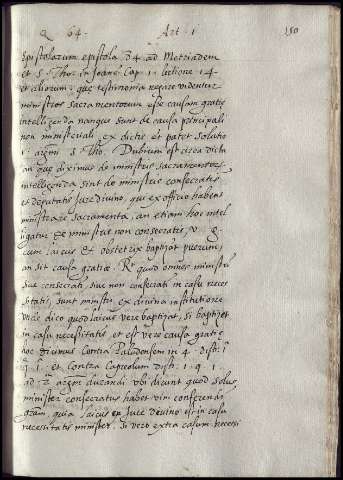 Q 64. Art. 1 150
Apostolorum epistola 34 ad Metriadem
et S. Tho. in Joane Cap. 1. lectione 14
et aliorum: que testimonia negare videntur
ministros sacramentorum esse causam gratie
intelligenda nanque sunt de causa principali
non ministeriali, ex dictis et patet solutio
1. argum. S. Tho. Dubium est circa dicta
an que diximus de ministris sacramentorum
intelligenda sint de ministris consecratis
et deputatis Jure divino, qui ex officio habent
ministrare sacramenta, an etiam hoc intel
ligatur de ministris non consecratis, v. g.
cum laicus et obstetrix baptizat puerum
an sit causa gratiae. Rx quod omnes ministri
sive consecrati, sive non consecrati in casu neces
sitatis, sunt ministri ex divina institutione
unde dico quod laicus vere baptizat, si baptizet
in casu necessitatis et est vere causa gratie
hoc dicimus contra Paludensem in 4. dist. 1
q. 1. et contra Capreolum dist. 1. q. 1.
ad 2. argum durandi ubi dicunt quod solus
minister consecratus habet vim conferendi
gram, quia laicus ex Jure divino est in casu
necessitatis minister. Si vero extra casum necessi